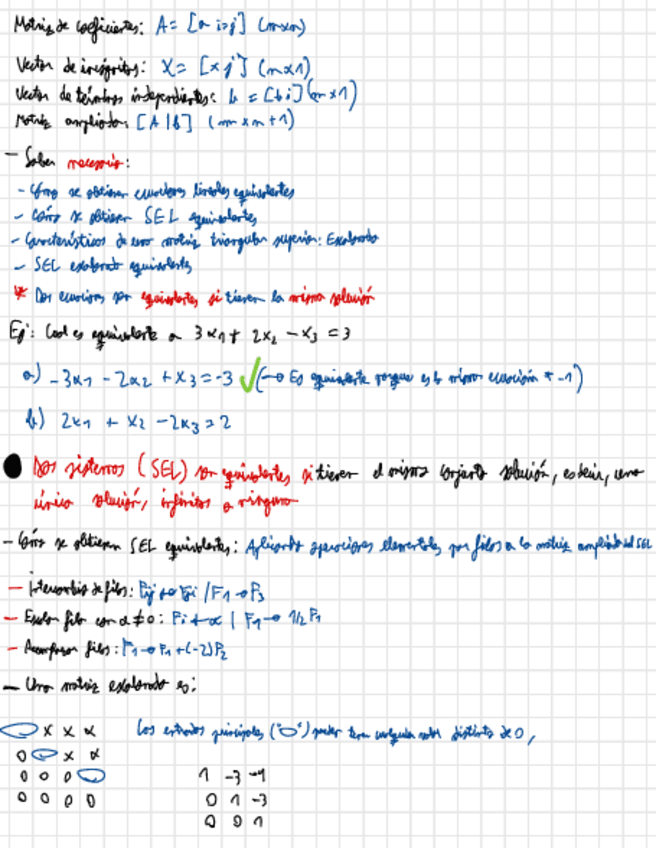 Matriz de coeficientes: A = [a i,j] (m×n)
Vector de incógnitas: X = [x j] (n×1)
Vector de términos independientes: b = [b i] (m×1)
Matriz ampliada: [A | b] (m × n + 1)
- Saber necesario:
- Cómo se obtienen ecuaciones lineales equivalentes
- Cómo se obtienen SEL equivalentes
- Características de una matriz triangular superior: Escalonada
- SEL escalonado equivalentes
* Dos ecuaciones son equivalentes si tienen la misma solución
Ej: Cual es equivalente a 3x1 + 2x2 - x3 = 3
a) -3x1 - 2x2 + x3 = -3 ✓ (→ Es equivalente porque es la misma ecuación * -1)
b) 2x1 + x2 - 2x3 = 2
● Dos sistemas (SEL) son equivalentes si tienen el mismo conjunto solución, es decir, una
única solución, infinitas o ninguna
- Cómo se obtienen SEL equivalentes: Aplicando operaciones elementales por filas a la matriz ampliada del SEL
- Intercambio de filas: Fj ↔ Fi / F1 → F3
- Escalar fila con α ≠ 0: Fi ← α | F1 → 1/2 F1
- filas: F1 → F1 + (-2)F2
- Una matriz escalonada es:
x x x
Las entradas principales ("O") pueden tener cualquier valor distinto de 0,
0 x x
0 0 0
0 0 0 0
1 -3 -1
0 1 -3
0 0 1